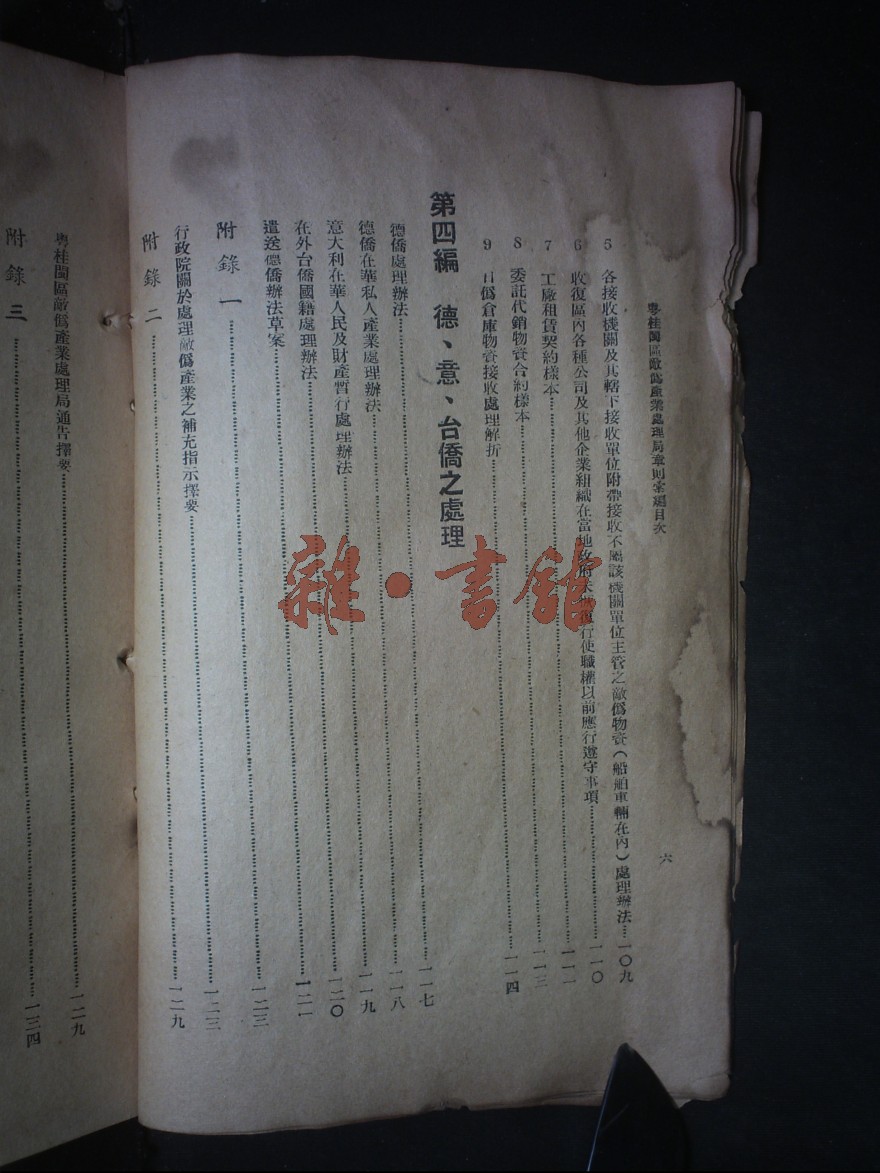 粵桂閩區敵偽產業處理局章則彙編目次
六
5 各接收機關及其轄下接收單位附帶接收不屬該機關單位主管之敵偽物資(船舶車輛在內)處理辦法…一〇九
6 收復區內各種公司及其他企業組織在當地政府未恢復行使職權以前應行遵守事項…一一〇
7 工廠租賃契約樣本…一一一
8 委託代銷物資合約樣本…一一三
9 日偽倉庫物資接收處理解折…一一四
第四編 德、意、台僑之處理…一一七
德僑處理辦法…一一八
德僑在華私人產業處理辦法…一一九
意大利在華人民及財產暫行處理辦法…一二〇
在外台僑國籍處理辦法…一二一
遣送德僑辦法草案…一二三
附錄一…一二三
行政院關於處理敵偽產業之補充指示擇要
附錄二…一二九
粵桂閩區敵偽產業處理局通告擇要…一二九
附錄三…一三四
雜·書館